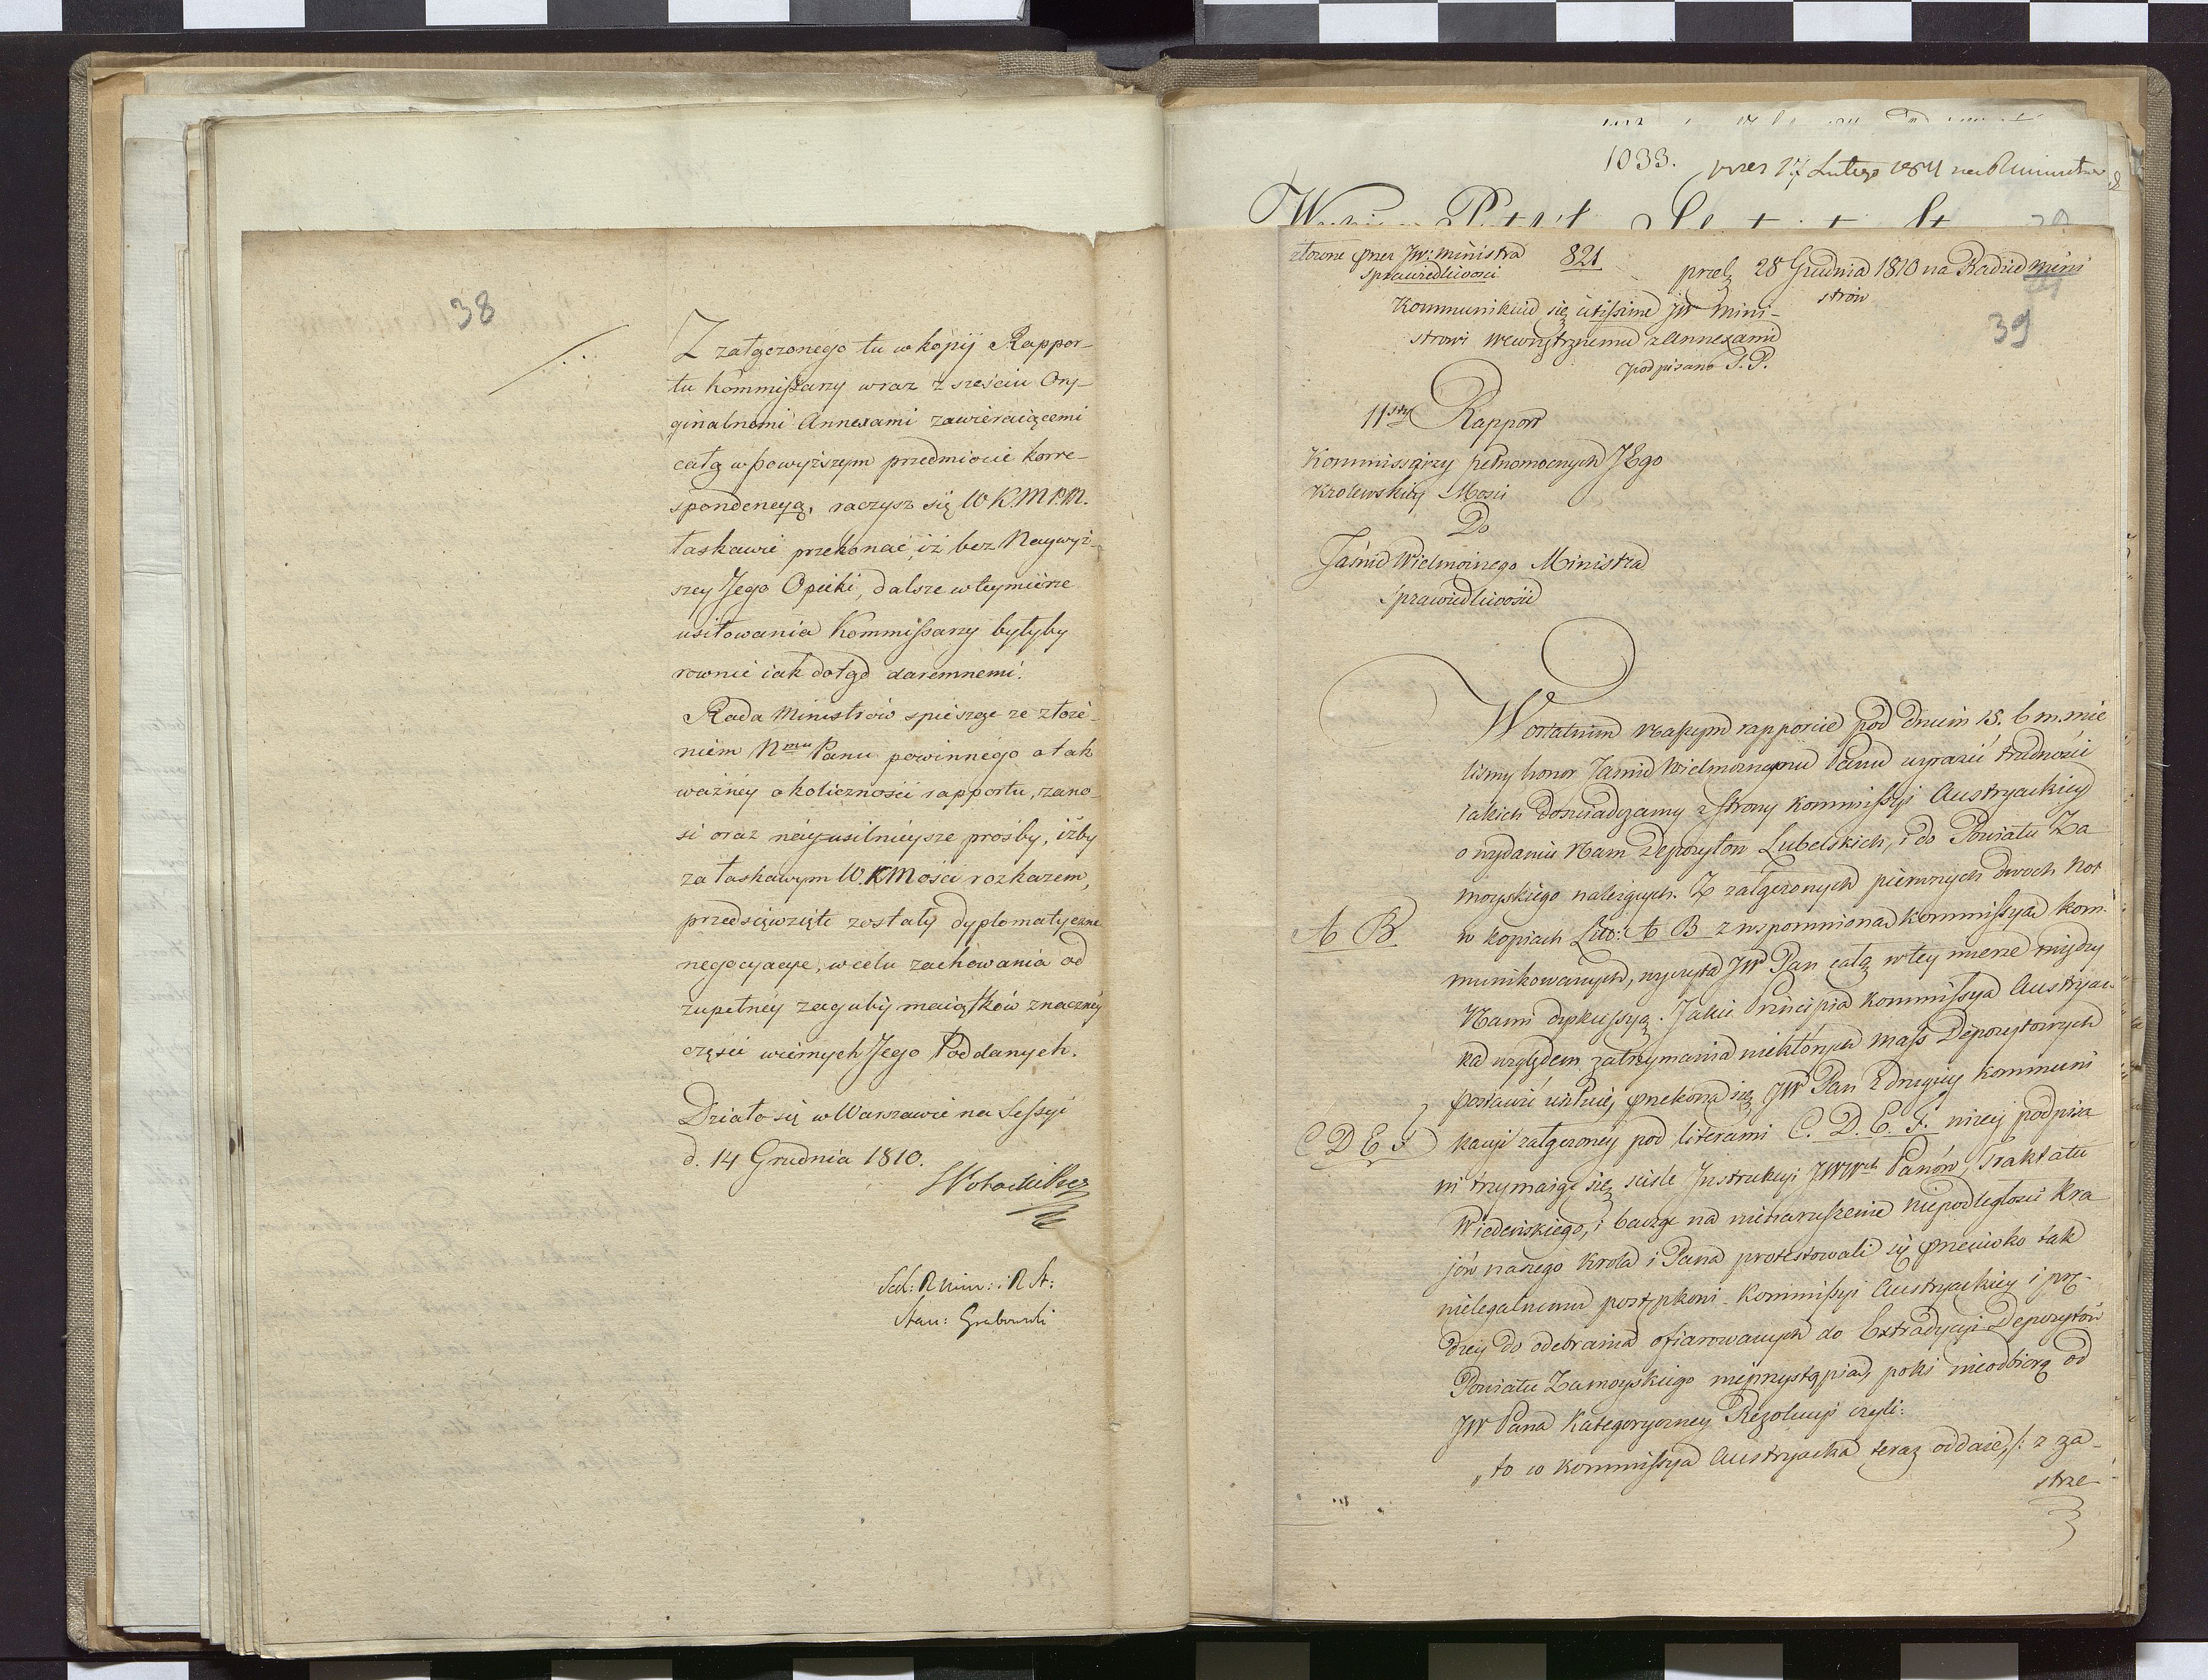 38
Z załączonego tu w kopij Rappor-
tu Kommissarzy wraz z sześciu Ory-
ginalnemi Annexami zawieraiącemi
całą w powyższym przedmiocie korre-
spondencyą, raczysz się W K.M.P.M.
łaskawie przekonać, iż bez Naywyż-
szey Jego Opieki, dalsze w teymierze
usiłowania Kommissarzy byłyby
rownie iak dotąd daremnemi.
Rada Ministrów spieszge ze złoże-
niem Nmu Panu powinnego o tak
ważney okoliczności rapportu, zano-
si oraz nayusilnieysze prośby, iżby
za łaskawym W.K.Mości rozkazem,
przedsięwzięte zostały dyplomatyczne
negocyacye, w celu zachowania od
zupełney zaguby maiątków znaczney
części wiernych Jego Poddanych.
Działo się w Warszawie na Sessyi
d. 14 Grudnia 1810.
Sek: R Min: i R St:
Stan: Grabowski
1033. prez 17 Lutego 1811 na Ministrów
złożone przez JW: Ministra 821 prez 28 Grudnia 1810 na Radzie Mini
Sprawiedliwości strów
Kommunikuie się citissime JW Mini-
strowi Wewnętrznemu z Annexami
podpisano J. P.
39
11sty Rapport
Kommissarzy pełnomocnych JEgo
Krolewskiey Mosci
Do
Jaśnie Wielmożnego Ministra
Sprawiedliwości
W ostatnim naszym rapporcie pod dniem 15. b m. mie
liśmy honor Jaśnie Wielmożnemu Panu wyrazić trudności
iakich doświadczamy z strony Kommissyi Austryackiey
o wydanie Nam Depozytow Lubelskich, i do Powiatu Za
moyskiego należących. Z załączonych pierwszych dwoch Not
A B w kopiach Litt: A B z wspomnioną Kommissyą kom-
munikowanych, wyczyta JW Pan całą w tey mierze między
Nami dyskussyą. Jakie Principia Kommissya Austryac
ka względem zatrzymania niektorych mass Depozytowych
postawić usiłuie, przekona się JW Pan z drugiey kommuni
C D E F kacyi załączoney pod literami C. D. E. F. niżey podpisa
ni trzymaiąc się ściśle Instrukcyi JWWch Panów, Traktatu
Wiedeńskiego, i bacząc na nienaruszenie niepodległości Kra
jów naszego Krola i Pana protestowali się przeciwko tak
nielegalnemu postępkowi Kommissyi Austryackiey i prę-
dzey do odebrania ofiarowanych do Extradycyi Depozytów
Powiatu Zamoyskiego nieprzystąpią, poki nieodbiorą od
JW Pana Kategoryczney Rezolucyi czyli:
„to co Kommissya Austryacka teraz oddaie, /: z za-
strze